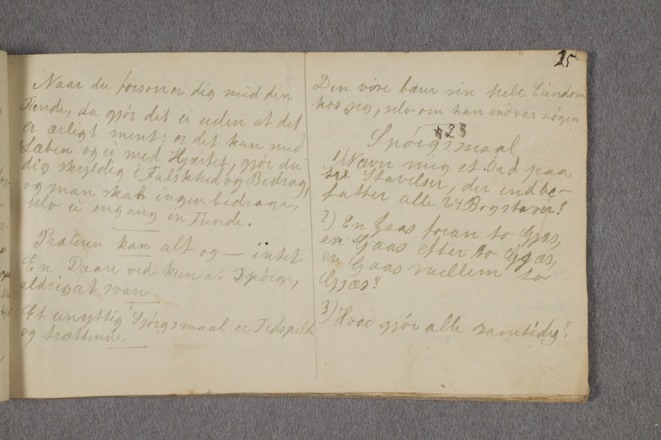 Naar du forsoner dig med din
Fiende, da gjør det ei uden at det
er ærligt ment; er det kun med
Læben og ei med Hjærtet, gjør du
dig skyldig i Falskhed og Bedrag,
og man skal ingen bedrage,
selv ei engang en Fiende.
Præsten kan alt og — intet
En Daare ved kun at Spørge,
aldrig at svare
Et unyttig Spørgsmaal er Tidsspilde
og trættende
25
Den vise bær sin hele Eiendom
hos sig, selv om han end var nøgen
23
Spørgsmaal
1) Nævn mig et Ord paa
tre Stavelser, der indbe-
fatter alle 24 Bogstaver?
2) En Gaas foran to Gjæs,
en Gaas efter to Gjæs,
en Gaas mellem to
Gjæs?
3) Hvad gjør alle samtidig?